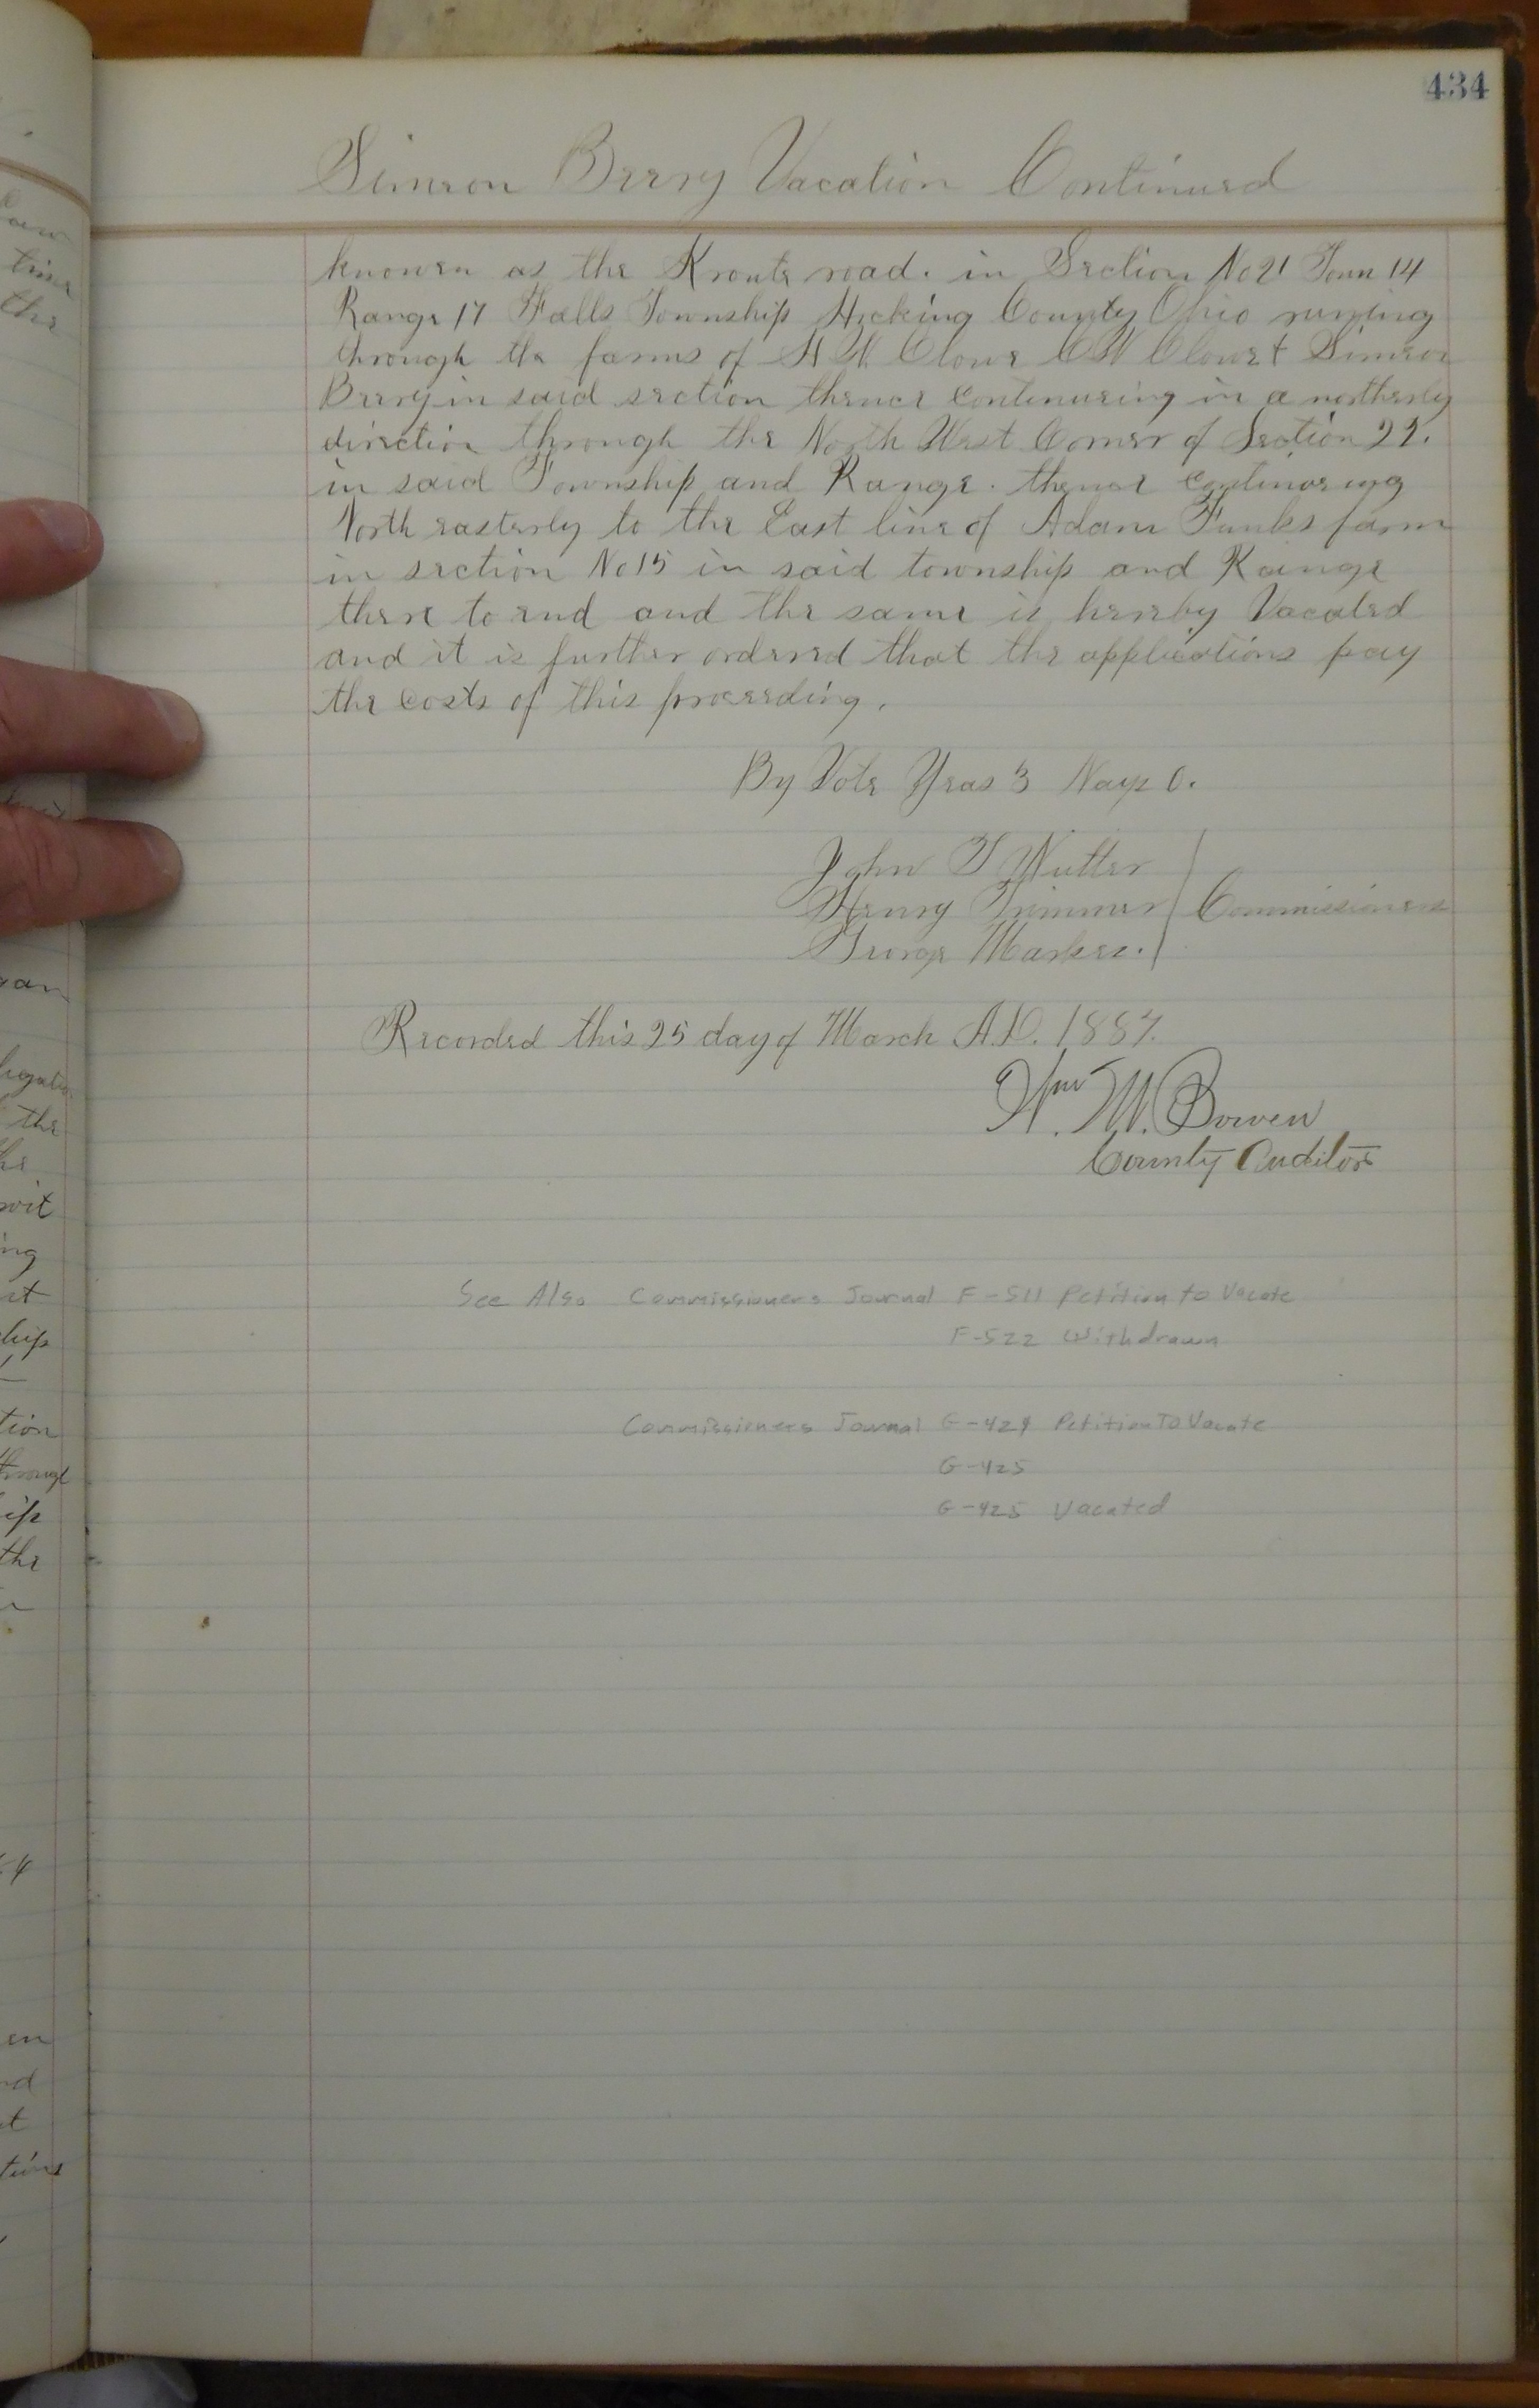 434
Simeon Berry Vacation Continued
knowen as the Krouts road. in Section No 21 Town 14
Range 17 Falls Township Hocking County Ohio running
through the farms of H W Clowe C W Clowe & Simeon
Berry in said section thence contenueing in a northerly
direction through the North West Corner of Section 22.
in said Township and Range. thence continueing
North easterly to the East line of Adam Funks farm
in section No 15 in said township and Range
there to end and the same is hereby Vacated
and it is further ordered that the applications pay
the costs of this proceeding.
By Vote Yeas 3 Nays 0.
John T Nutter
Henry Trimmer Commissioners
George Marks.
Recorded this 25 day of March A.D. 1887.
Wm M. Bowen
County Auditor
See Also Commissioners Journal F-511 Petition to Vacate
F-522 Withdrawn
Commissioners Journal G-424 Petition To Vacate
G-425
G-425 Vacated